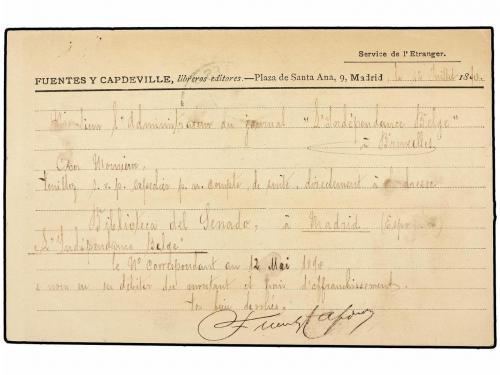 Service de l'Etranger.
FUENTES Y CAPDEVILLE, libreros-editores.—Plaza de Santa Ana, 9, Madrid, le 12 Juillet 18
Monsieur l'Administrateur du journal "L'Indépendance Belge"
à Bruxelles
Cher Monsieur,
Veuillez s.v.p. expédier p.n. compte, de suite, directement à l'adresse
Biblioteca del Senado, à Madrid (Espagne)
"L'Indépendance Belge"
le Nº correspondant au 12 Mai 1890
et nous en débiter du montant et frais d'affranchissement.
Vos bien dévoués.